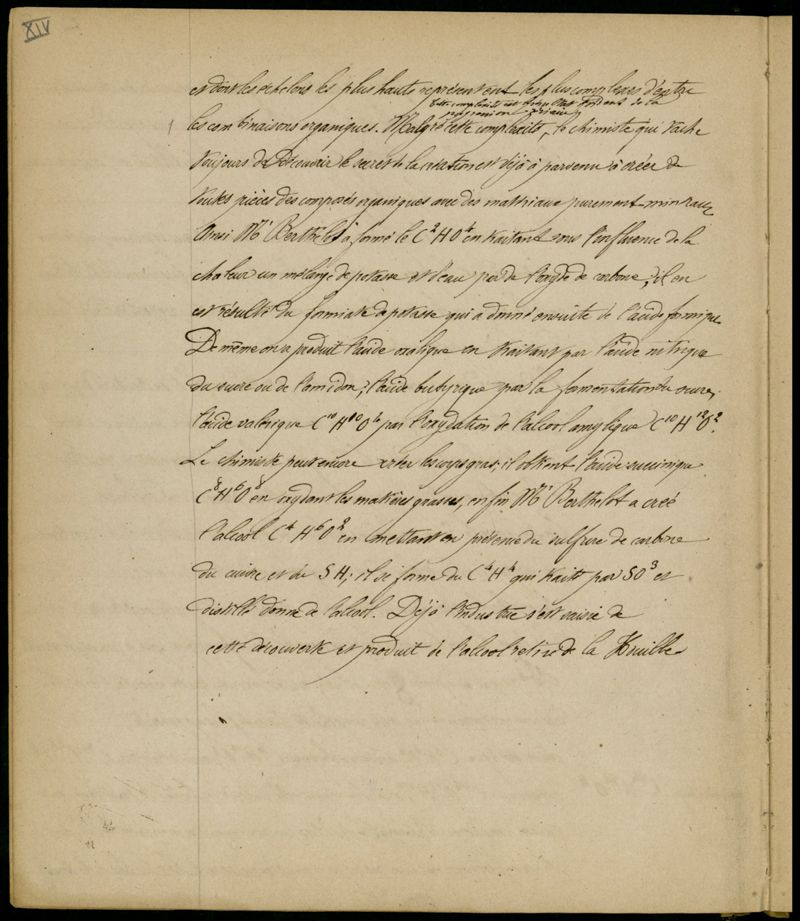 XIV
et dont les échelons les plus hauts représentent les plus complexes d'entre
cette complexité est
progression
les combinaisons organiques. Malgré cette complexité, le chimiste qui tache
toujours de découvrir le secret de la création est déjà parvenu à créer de
toutes pièces des composés organiques avec des matériaux purement minéraux
Ainsi Mr Berthelot a formé le C2HO4 en traitant sous l'influence de la
chaleur un mélange de potasse et d'eau par de l'oxyde de carbone; il en
est résulté du formiate de potasse qui a donné ensuite de l'acide formique
De même on a produit l'acide oxalique en traitant par l'acide nitrique
du sucre ou de l'amidon; l'acide butyrique par la fermentation du sucre;
l'acide valérique C10H10O4 par l'oxydation de l'alcool amylique C10H12O2.
Le chimiste peut encore créer les corps gras; il obtient l'acide succinique
C8H6O8 en oxydant les matières grasses, enfin Mr Berthelot a créé
l'alcool C4H6O2 en mettant en présence du sulfure de carbone
du cuivre et du SH; il se forme du C4H4 qui traité par SO3 et
distillé donne de l'alcool. Déjà l'industrie s'est saisie de
cette découverte et produit de l'alcool retiré de la Houille